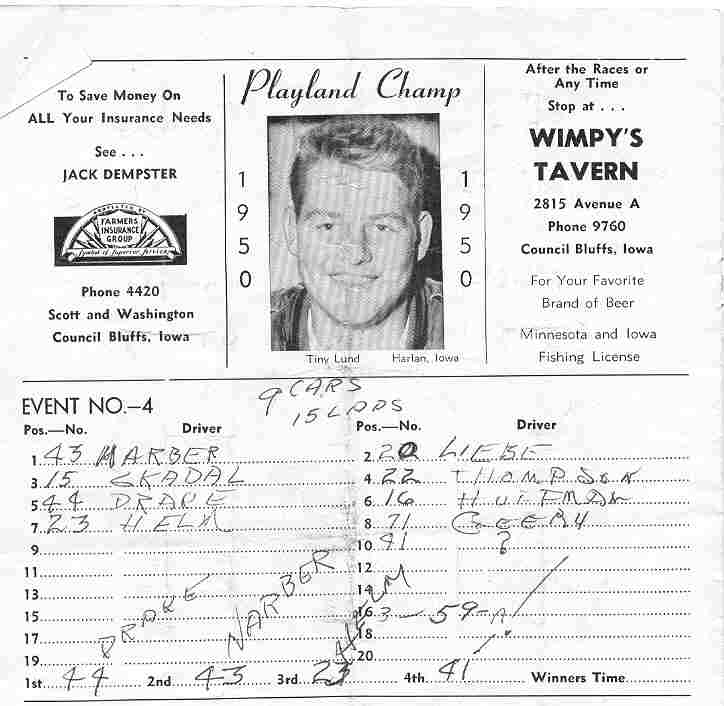 To Save Money On
ALL Your Insurance Needs
See . . .
JACK DEMPSTER
FARMERS
INSURANCE
GROUP
Symbol of Superior Service
Phone 4420
Scott and Washington
Council Bluffs, Iowa
Playland Champ
1950
1950
Tiny Lund Harlan, Iowa
After the Races or
Any Time
Stop at . . .
WIMPY'S
TAVERN
2815 Avenue A
Phone 9760
Council Bluffs, Iowa
For Your Favorite
Brand of Beer
Minnesota and Iowa
Fishing License
9 CARS
15 LAPS
EVENT NO.—4
Pos.—No. Driver Pos.—No. Driver
1 43 NARBER 2 20 LIEBE
3 15 SKADAL 4 22 THOMPSON
5 44 DRAKE 6 16
7 23 HELM 8 71
9 10 91 ?
11 12
13 14
15 16 3 - 59-A
17 18
19 20
DRAKE NARBER HELM
1st 44 2nd 43 3rd 23 4th 41 Winners Time